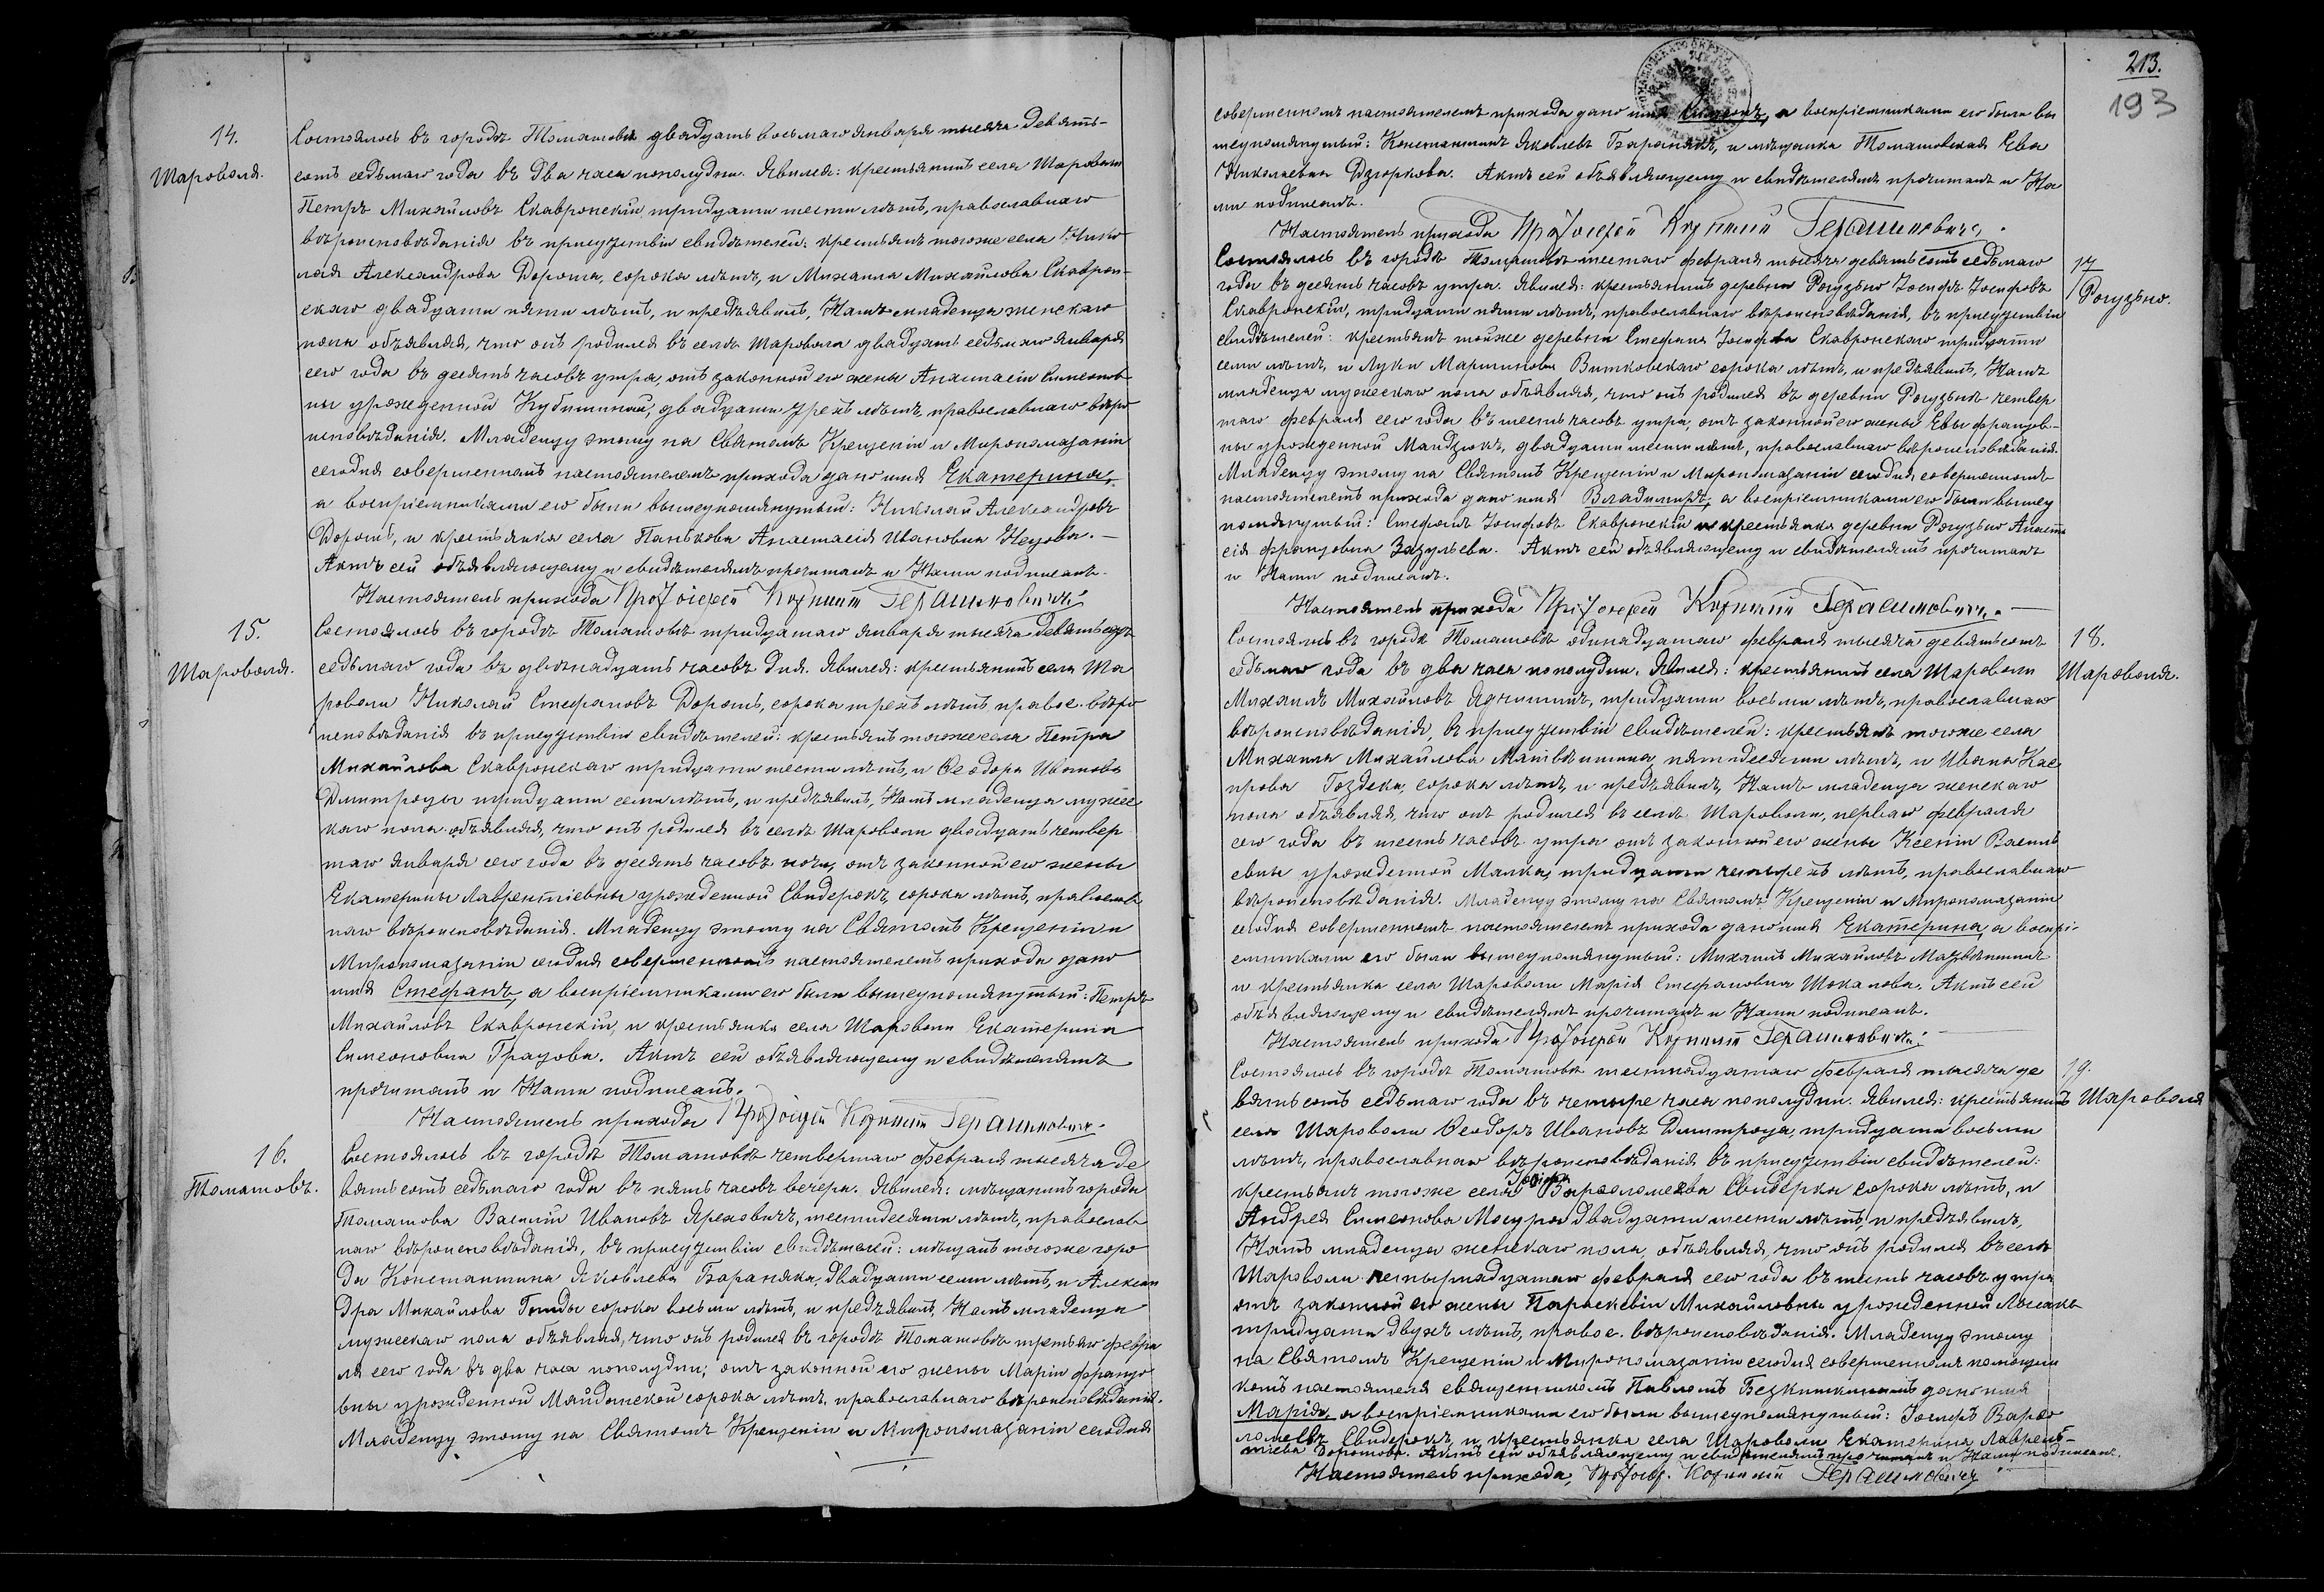 14.
Шароволя.
Состоялось въ городѣ Томашовѣ двадцать восьмаго января тысяча девять-
сотъ седьмаго года въ два часа пополудни. Явился: крестьянинъ села Шароволи
Петръ Михайловъ Скавронскій, тридцати шести лѣтъ, православнаго
вѣроисповѣданія въ присутствіи свидѣтелей: крестьянъ тогоже села Нико
лая Александрова Дороша, сорока лѣтъ, и Михаила Михайлова Скаврон-
скаго двадцати пяти лѣтъ, и предъявилъ, Намъ младенца женскаго
пола объявляя, что онъ родился въ селѣ Шароволя двадцать седьмаго Января
сего года въ десять часовъ утра, отъ законной его жены Анастасіи Симеонов
ны урожденной двадцати трехъ лѣтъ, православнаго вѣро
исповѣданія. Младенцу этому на Святомъ Крещеніи и Миропомазаніи
сегодня совершенномъ настоятелемъ прихода дано имя Екатерина,
а воспріемниками его были вышеупомянутый: Николай Александровъ
Дорошъ, и крестьянка села Панькова Анастасія Ивановна
Актъ сей объявляющему и свидѣтелямъ прочитанъ и Нами подписанъ.
Настоятель прихода Протоіерей Корнилій Герасимовичъ
15.
Шароволя.
Состоялось въ городѣ Томашовѣ тридцатаго января тысяча девятьсотъ
седьмаго года въ двѣнадцать часовъ дня. Явился: крестьянинъ села Ша
роволи Николай Стефановъ Дорошъ, сорока трехъ лѣтъ правос. вѣро
исповѣданія въ присутствіи свидѣтелей: крестьянъ тогоже села Петра
Михайлова Скавронскаго тридцати шести лѣтъ, и Ѳеодора Иванова
Дмитроцы тридцати семи лѣтъ, и предъявилъ, Намъ младенца мужес
каго пола объявляя, что онъ родился въ селѣ Шароволи двадцать четвер
таго Января сего года въ десять часовъ ночи, отъ законной его жены
Екатерины Лаврентіевны урожденной Свидерокъ, сорока лѣтъ, православ
наго вѣроисповѣданія. Младенцу этому на Святомъ Крещеніи и
Миропомазаніи сегодня совершенномъ настоятелемъ прихода дано
имя Стефанъ, а воспріемниками его были вышеупомянутый: Петръ
Михайловъ Скавронскій, и крестьянка села Шароволи Екатерина
Симеоновна Грацова. Актъ сей объявляющему и свидѣтелямъ
прочитанъ и Нами подписанъ.
Настоятель прихода Протоіерей Корнилій Герасимовичъ
16.
Томашовъ.
Состоялось въ городѣ Томашовѣ четвертаго февраля тысяча де
вятьсотъ седьмаго года въ пять часовъ вечера. Явился: мѣщанинъ города
Томашова Василій Ивановъ Яреховичъ, шестидесяти лѣтъ, православ
наго вѣроисповѣданія, въ присутствіи свидѣтелей: мѣщанъ тогоже горо
да Константина Яковлева Бараняка, двадцати семи лѣтъ, и Алексан
дра Михайлова сорока восьми лѣтъ, и предъявилъ, Намъ младенца
мужескаго пола объявляя, что онъ родился въ городѣ Томашовѣ третьяго февра
ля сего года въ два часа пополудни, отъ законной его жены Маріи Францо
вны урожденной Майданской сорока лѣтъ, православнаго вѣроисповѣданія.
Младенцу этому на Святомъ Крещеніи и Миропомазаніи сегодня
213.
193
совершенномъ настоятелемъ прихода дано имя а воспріемниками его были вы
шеупомянутый: Константинъ Яковлевъ Баранякъ, и мѣщанка Томашовская Ева
Николаевна Дзюркова. Актъ сей объявляющему и свидѣтелямъ прочитанъ и На
ми подписанъ.
Настоятель прихода Протоіерей Корнилій Герасимовичъ.
17
Рогузьно.
Состоялось въ городѣ Томашовѣ шестаго февраля тысяча девятьсотъ седьмаго
года въ десять часовъ утра. Явился: крестьянинъ деревни Рогузьно Іосифъ Іосифовъ
Скавронскій, тридцати пяти лѣтъ, православнаго вѣроисповѣданія, въ присутствіи
свидѣтелей: крестьянъ тойже деревни Стефана Іосифова Скавронскаго тридцати
семи лѣтъ, и Луки Мартинова Витковскаго сорока лѣтъ, и предъявилъ, Намъ
младенца мужескаго пола объявляя, что онъ родился въ деревни Рогузьнѣ четвер
таго февраля сего года въ шесть часовъ утра, отъ законной его жены Евы Францов-
ны урожденной Мандзюкъ, двадцати шести лѣтъ, православнаго вѣроисповѣданія.
Младенцу этому на Святомъ Крещеніи и Миропомазаніи сегодня совершенномъ
настоятелемъ прихода дано имя Владимиръ, а воспріемниками его были вышеу
помянутый: Стефанъ Іосифовъ Скавронскій и крестьянка деревни Рогузьно Анаста
сія Францовна Зазулева. Актъ сей объявляющему и свидѣтелямъ прочитанъ
и Нами подписанъ.
Настоятель прихода Протоіерей Корнилій Герасимовичъ.
18.
Шароволя.
Состоялось въ городѣ Томашовѣ одинадцатаго февраля тысяча девятьсотъ
седьмаго года въ два часа пополудни. Явился: крестьянинъ села Шароволи
Михаилъ Михайловъ тридцати восьми лѣтъ, православнаго
вѣроисповѣданія, въ присутствіи свидѣтелей: крестьянъ тогоже села
Михаила Михайлова Матвѣишина, пятидесяти лѣтъ, и Ивана Кас
прова Гоздека, сорока лѣтъ, и предъявилъ, Намъ младенца женскаго
пола объявляя, что онъ родился въ селѣ Шароволи, перваго февраля
сего года въ шесть часовъ утра отъ законной его жены Ксеніи Василь
евны урожденной Малка, тридцати четырехъ лѣтъ, православнаго
вѣроисповѣданія. Младенцу этому на Святомъ Крещеніи и Миропомазаніи
сегодня совершенномъ настоятелемъ прихода дано имя Екатерина, а воспрі-
емниками его были вышеупомянутый: Михаилъ Михайловъ Матвѣишинъ
и крестьянка села Шароволи Марія Стефановна Шокалова. Актъ сей
объявляющему и свидѣтелямъ прочитанъ и Нами подписанъ.
Настоятель прихода Протоіерей Корнилій Герасимовичъ.
19.
Шароволя
Состоялось въ городѣ Томашовѣ шестнадцатаго февраля тысяча де
вятьсотъ седьмаго года въ четыре часа пополудни. Явился: крестьянинъ
села Шароволи Ѳеодоръ Ивановъ Дмитроца, тридцати восьми
лѣтъ, православнаго вѣроисповѣданія въ присутствіи свидѣтелей:
крестьянъ тогоже села Іосифа Варфоломеева Свидерка сорока лѣтъ, и
Андрея Симеонова Мазура двадцати шести лѣтъ, и предъявилъ,
Намъ младенца женскаго пола, объявляя, что онъ родился въ селѣ
Шароволи четырнадцатаго февраля сего года въ шесть часовъ утра
отъ законной его жены Параскевіи Михайловны урожденной
тридцати двухъ лѣтъ, правос. вѣроисповѣданія. Младенцу этому
на Святомъ Крещеніи и Миропомазаніи сегодня совершенномъ помощни
комъ настоятеля священникомъ Павломъ дано имя
Марія, а воспріемниками его были вышеупомянутый: Іосифъ Варфо
ломеевъ Свидерокъ, и крестьянка села Шароволи Екатерина Лаврен-
тіева Дорошова. Актъ сей объявляющему и свидѣтелямъ прочитанъ и Нами подписанъ.
Настоятель прихода, Протоіер. Корнилій Герасимовичъ